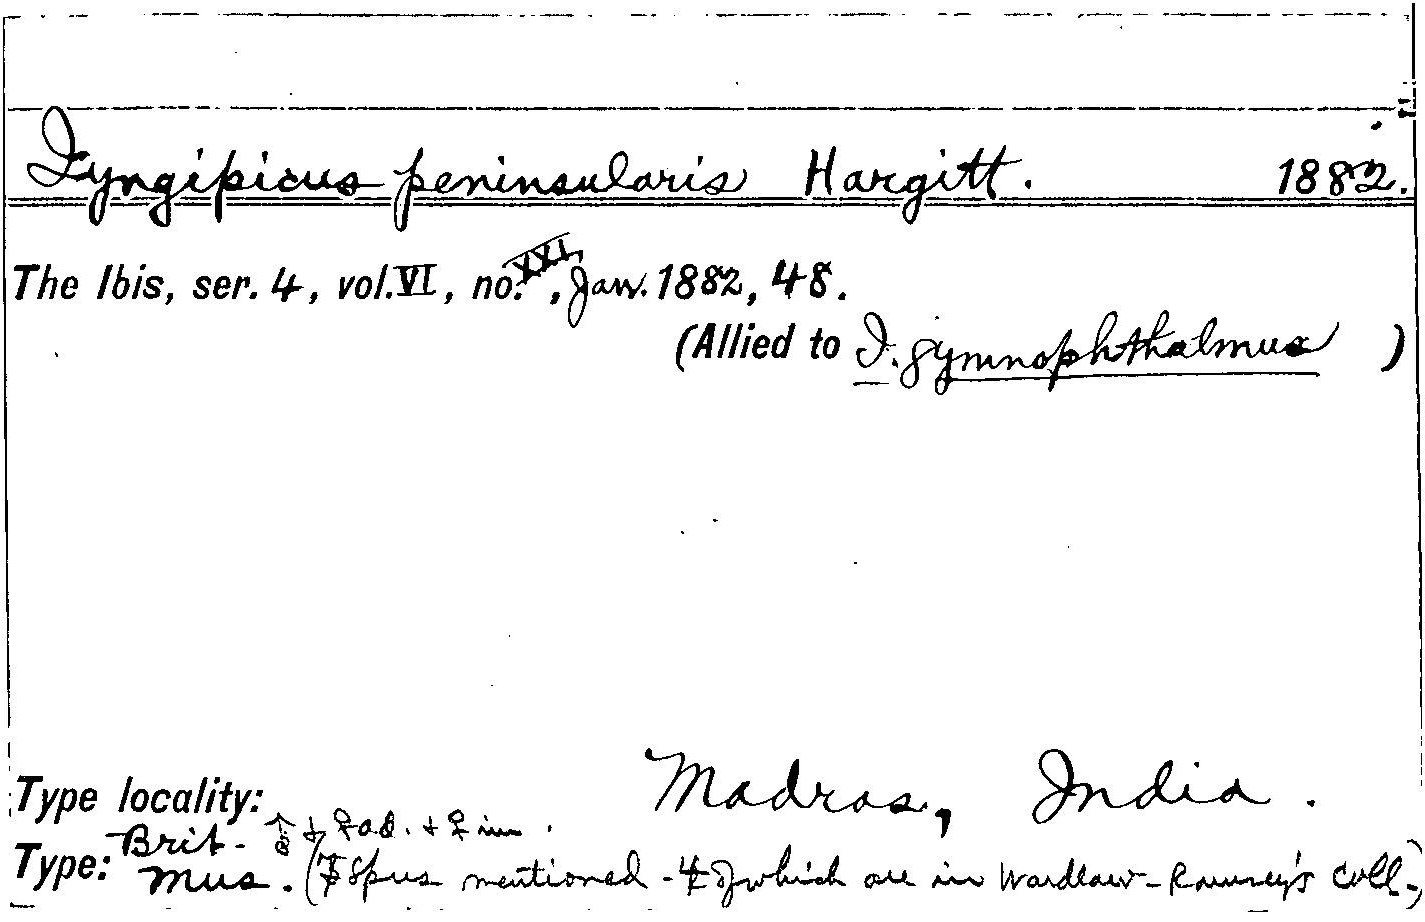 Iyngipicus peninsularis Hargitt. 1882.
The Ibis, ser. 4, vol. VI, no. XXI, Jan. 1882, 48.
(Allied to I. gymnophthalmus )
Type locality: Madras, India.
Type: Brit. Mus. ♀ ad. + ♀ im.
mentioned - 4 of which are in Wardlaw-Ramsey's Coll.)